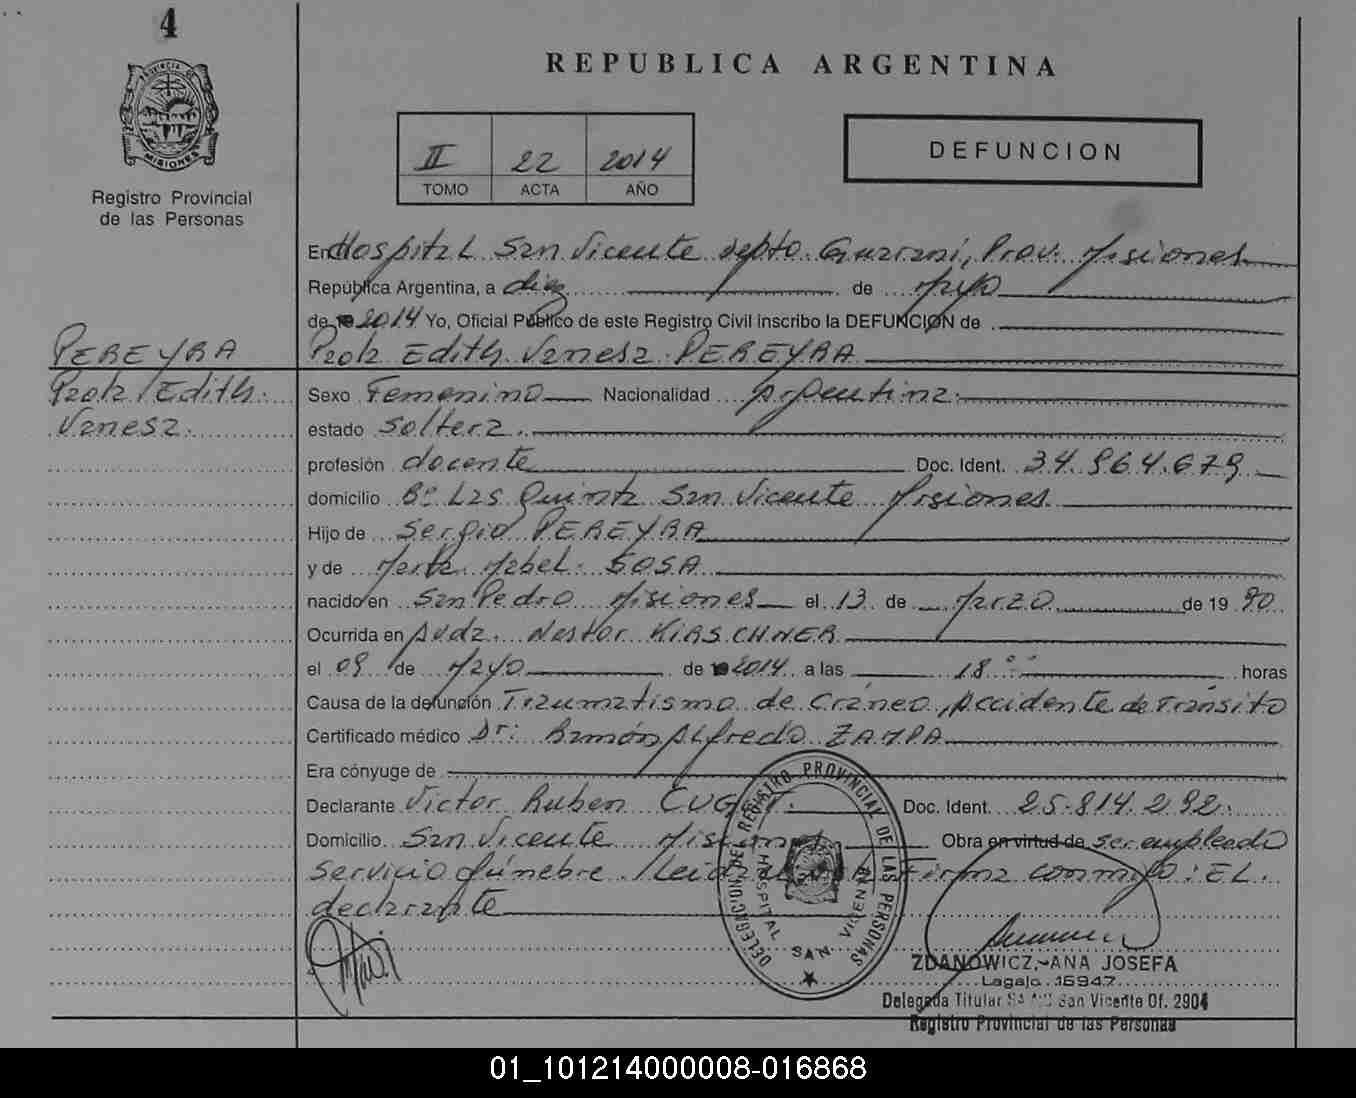 4
PROVINCIA DE
MISIONES
Registro Provincial
de las Personas
REPUBLICA ARGENTINA
II 22 2014
TOMO ACTA AÑO
DEFUNCION
En Hospital San Vicente Depto. Guaraní, Prov. Misiones
República Argentina, a diez de Mayo
de 2014 Yo, Oficial Público de este Registro Civil inscribo la DEFUNCION de
PEREYRA
Paola Edith Vanesa PEREYRA
Paola Edith
Vanesa
Sexo Femenino Nacionalidad Argentina
estado Soltera
profesión docente Doc. Ident. 34.964.679
domicilio Bº Las Quinta San Vicente Misiones
Hijo de Sergio PEREYRA
y de Mabel SOSA
nacido en San Pedro Misiones el 13 de Marzo de 1990
Ocurrida en Avda. Nestor KIRSCHNER
el 09 de Mayo de 2014 a las 18 horas
Causa de la defunción Traumatismo de Cráneo, Accidente de Tránsito
Certificado médico Dr: Ramón Alfredo
Era cónyuge de
Declarante Victor Ruben Doc. Ident. 25.814.292
Domicilio San Vicente Misiones Obra en virtud de ser empleado
Servicio fúnebre. Leida Firma conmigo: EL
declarante
DELEGACION DEL REGISTRO PROVINCIAL DE LAS PERSONAS
HOSPITAL SAN VICENTE
ZDANOWICZ, ANA JOSEFA
Legajo 15947
Delegada Titular San Vicente Of. 2904
Registro Provincial de las Personas
01_101214000008-016868